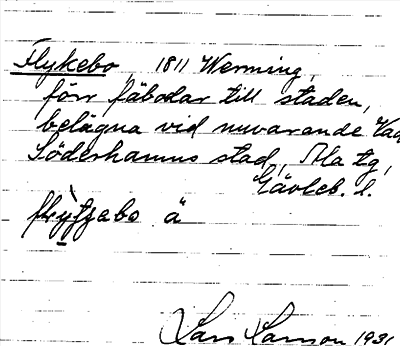 Flykebo, 1811 Werming,
förr fäbodar till staden,
belägna vid nuvarande
Söderhamns stad, Ala tg,
Gävleb. l.
ä
Lars Larsson 1931